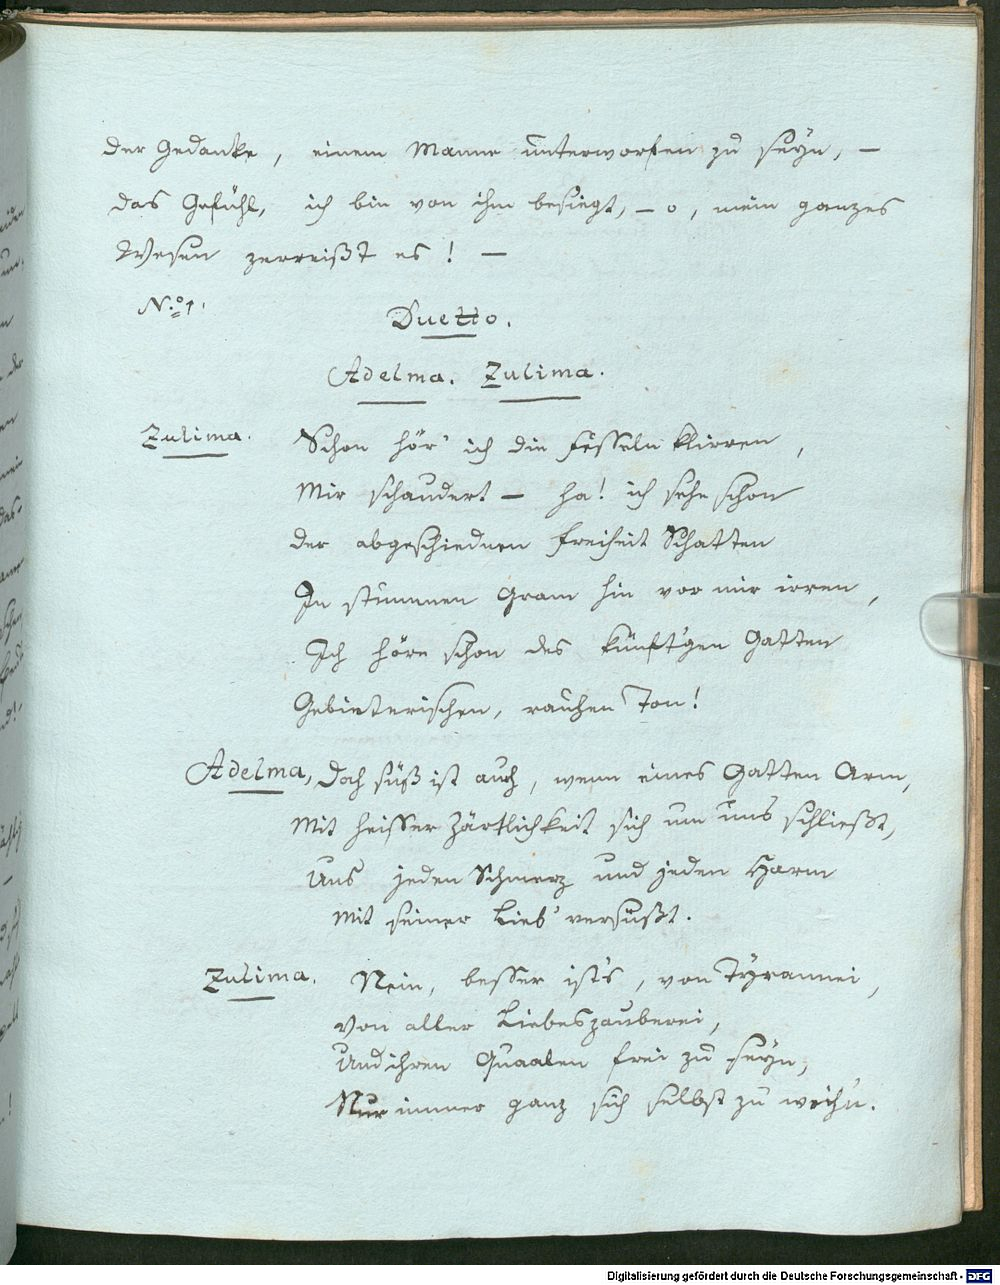 der Gedanke, einem Manne unterworfen zu seyn, —
das Gefühl, ich bin von ihm besiegt, – o, mein ganzes
Wesen zerreißt es! —
No. 1.
Duetto.
Adelma. Zulima.
Zulima. Schon hör' ich die Fesseln klirren,
Mir schaudert – ha! ich sehe schon
der abgeschiednen Freiheit Schatten
In stummen Gram hin vor mir irren,
Ich höre schon des künft'gen Gatten
Gebieterischen, rauhen Ton!
Adelma, Doch süß ist auch, wenn eines Gatten Arm,
Mit heisser Zärtlichkeit sich um uns schließt,
Uns jeden Schmerz und jeden Harm
Mit seiner Lieb' versüßt.
Zulima. Nein, besser ist's, von Tyrannei,
Von aller Liebeszauberei,
Und ihren Quaalen frei zu seyn,
Nur immer ganz sich selbst zu weih'n.
Digitalisierung gefördert durch die Deutsche Forschungsgemeinschaft - DFG